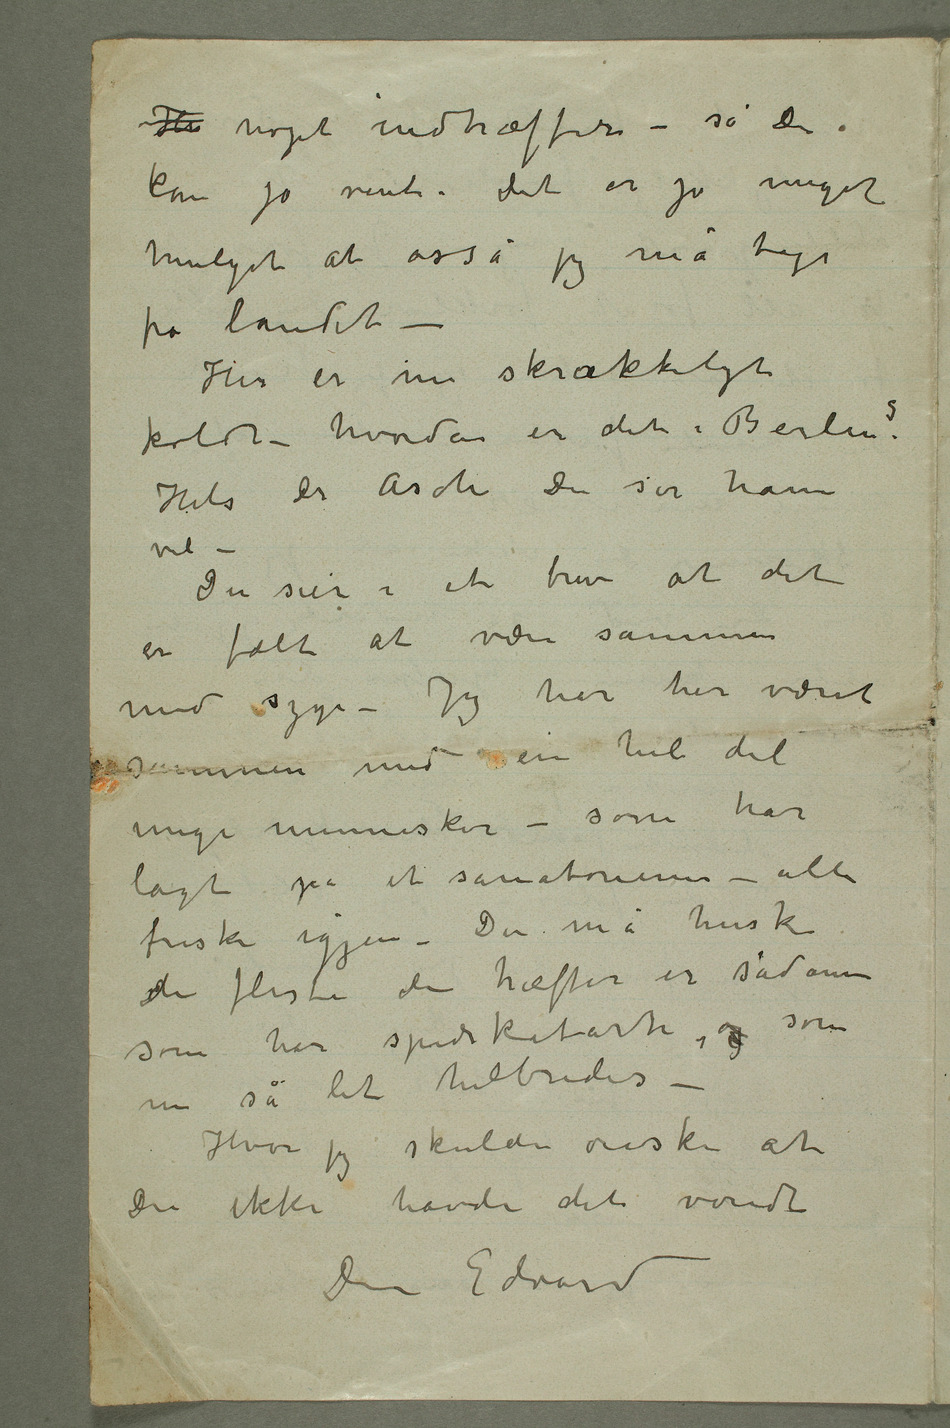 ~~Her~~ noget indtræffer – så Du
kan jo vente. Det er jo meget
muligt at også jeg må tage
fra landet –
Her er nu skrækkeligt
koldt – hvordan er det i Berlin?
Hils Dr Asch Du ser ham
vel –
Du sier i et brev at det
er fælt at være sammen
med syge – Jeg har her været
sammen med en hel del
unge mennesker – som har
lagt på et sanatorium – alle
friske igjen – Du må huske
de fleste du træffer er sådanne
som har spidskatarh, og som
nu så let helbredes –
Hvor jeg skulde ønske at
Du ikke havde det vondt
Din Edvard